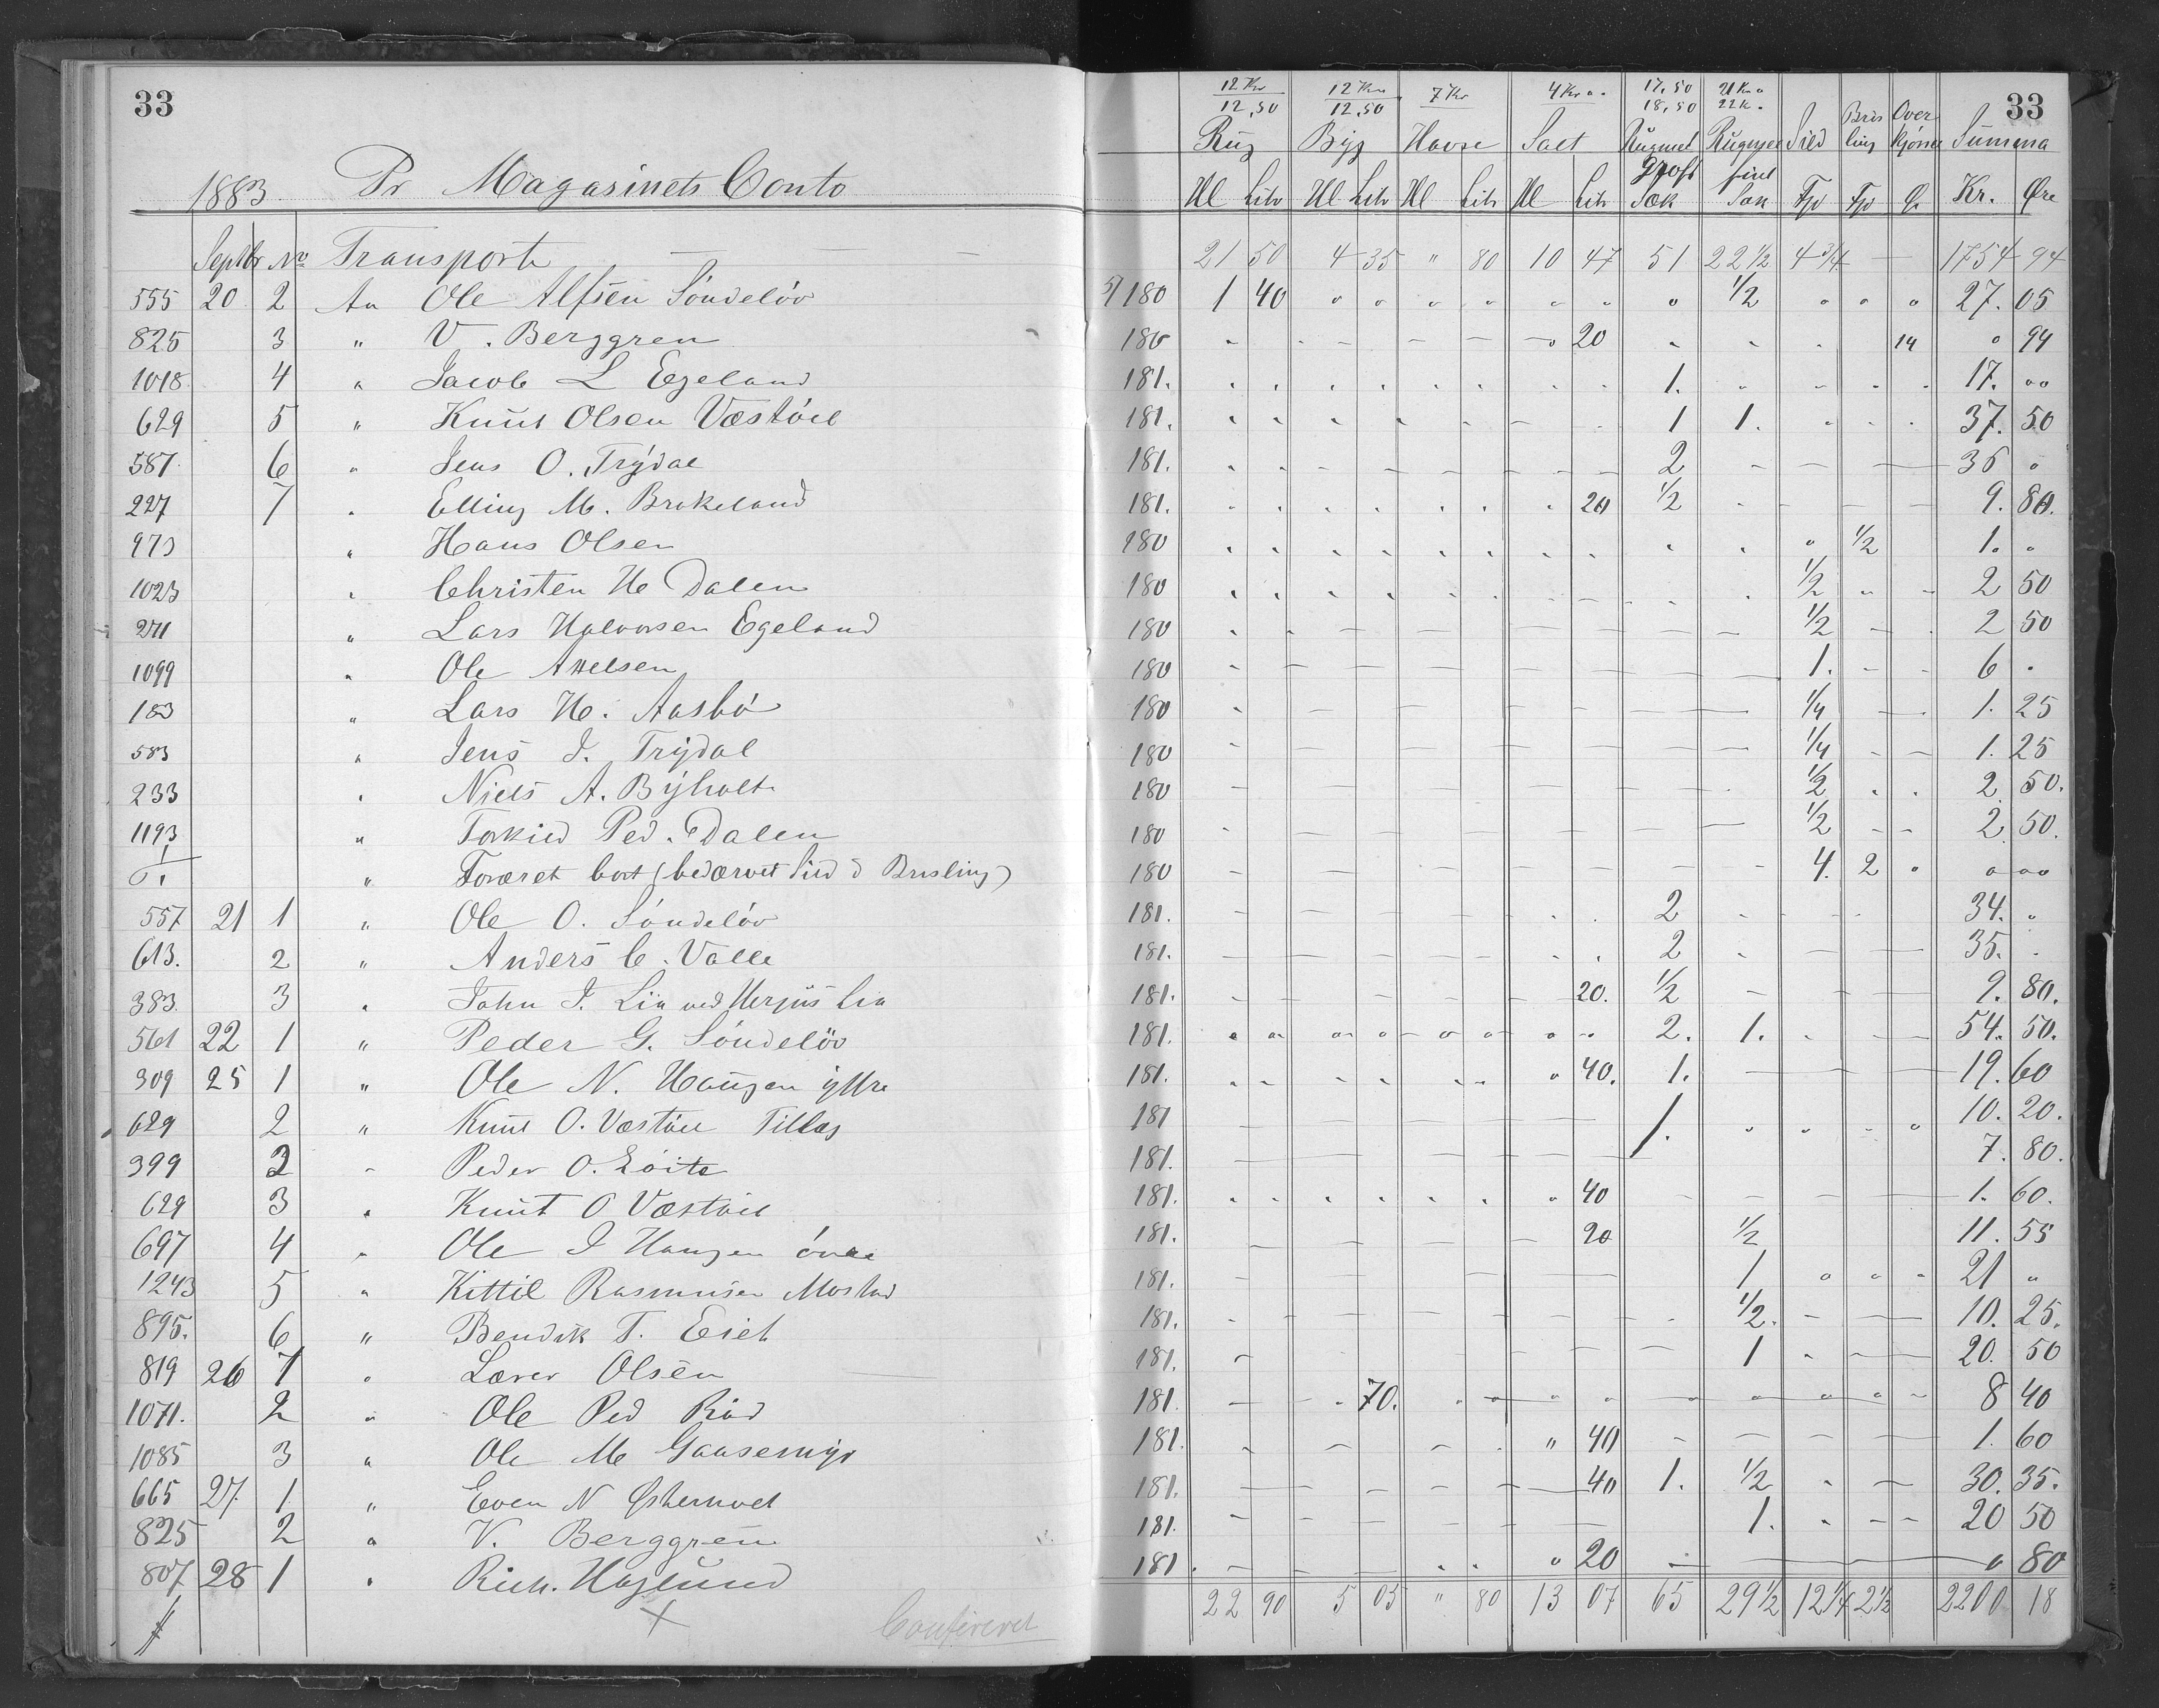 33
1883 Pr Magasinets Conto
12 Kr 12 Kr 7 Kr 4 Kr " 17,50 21 Kr " 33
12,50 12,50 18,50 22 K "
Rug Byg Havre Salt Rugmel Rugmel Sild Bris Over Summa
grovt fint ling kjørsel
Hl Litr Hl Litr Hl Litr Hl Litr Sæk Sæk Tdr Tdr Ø. Kr. Øre
Septbr No Transport 21 50 4 35 " 80 10 47 51 22 1/2 4 3/4 — 1754 94
555 20 2 An Ole Alfsen Söndelöv 180 1 40 " " " " " " " 1/2 " " " 27. 05
825 3 " V. Berggren 180 20 14 " 94
1018 4 " Jacob L Egeland 181. 1. 17. ""
629 5 " Knut Olsen Væstöel 181. 1 1. 37. 50
587 6 " Jens O. Trydal 181. 2 36 "
227 7 " Elling M. Brokeland 181. 20 1/2 9. 80.
973 " Hans Olsen 180 " 1/2 1. "
1023 " Christen H Dalen 180 1/2 2 50
271 " Lars Halvorsen Egeland 180 1/2 2 50
1099 " Ole Attelsen 180 1. 6 "
183 " Lars H. Aasbö 180 1/4 1. 25
583 " Jens J. Trydal 180 1/4 1. 25
233 " Niels A. Byholt 180 1/2 2 50.
1193 " Torkild Ped. Dalen 180 1/2 2 50.
" bort (bedærvet Sild & Brisling) 180 4. 2 " " ""
557 21 1 " Ole O. Söndelöv 181. 2 34. "
613. 2 " Anders C. Valle 181. 2 35. "
383. 3 " John J. Lia ved Herjus Lia 181. 20. 1/2 9. 80.
561 22 1 " Peder G. Söndelöv 181. 2. 1. 54. 50.
309 25 1 " Ole N. Haugen yttre 181. " 40. 1. 19. 60
629 2 " Knut O. Væstöel Tillæg 181 10. 20.
399 2 " Peder O. Löite 181. 1. 7. 80.
629 3 " Knut O Væstöel 181. " 40 1. 60.
697 4 " Ole J Haugen övre 181. 20 1/2 11. 55
1243 5 " Kittil Rasmusen Mostad 181. 1 21 "
895. 6 " Bendik T. Eiet 181. 1/2. 10. 25.
819 26 1 " Lærer Olsen 181. 1 20. 50
1071. 2 " Ole Ped Röd 181. 70. 8 40
1085 3 " Ole M Gaasemyr 181. " 40 1. 60
665 27. 1 " Even N Østerhvet 181. 40 1. 1/2 30. 35.
825 2 " V. Berggren 181. 1. 20 50
807 28 1 " Rich. Haglund 181. " 20 " 80
22 90 5 05 " 80 13 07 65 29 1/2 12 1/4 2 1/2 2200 18
Confereret